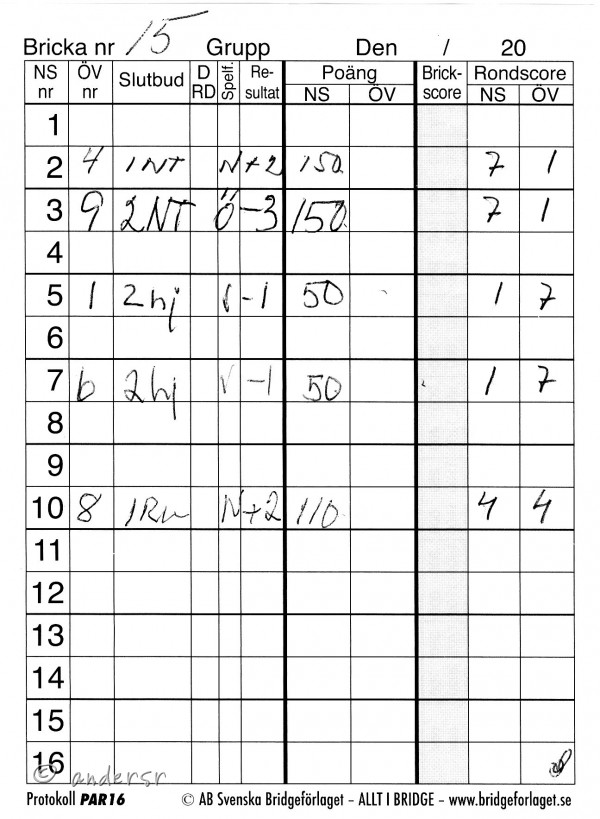 Bricka nr 15 Grupp Den / 20
NS nr ÖV nr Slutbud D RD Spelf. Re-sultat Poäng NS ÖV Brick-score Rondscore NS ÖV
1
2 4 1NT N +2 150 7 1
3 9 2NT Ö -3 150 7 1
4
5 1 2hj V -1 50 1 7
6
7 6 2hj V -1 50 1 7
8
9
10 8 1Ru N +2 110 4 4
11
12
13
14
15
16
© andersr
Protokoll PAR16 © AB Svenska Bridgeförlaget – ALLT I BRIDGE – www.bridgeforlaget.se